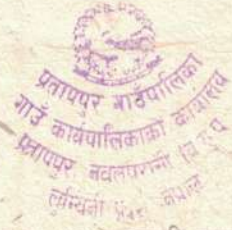 प्रतापपुर गाउँपालिका
गाउँ कार्यपालिकाको कार्यालय
प्रतापपुर नवलपरासी
लुम्बिनी प्रदेश नेपाल